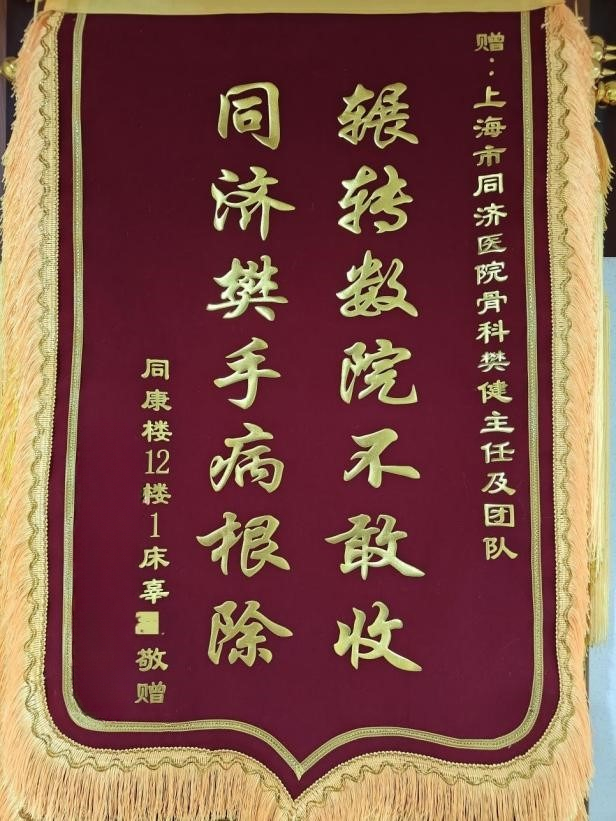 赠：上海市同济医院骨科樊健主任及团队
辗转数院不敢收
同济樊手病根除
同康楼12楼1床辜 敬赠